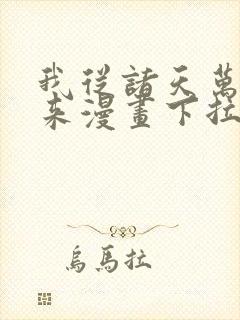 我從諸天萬
来漫畫下拉
烏馬拉